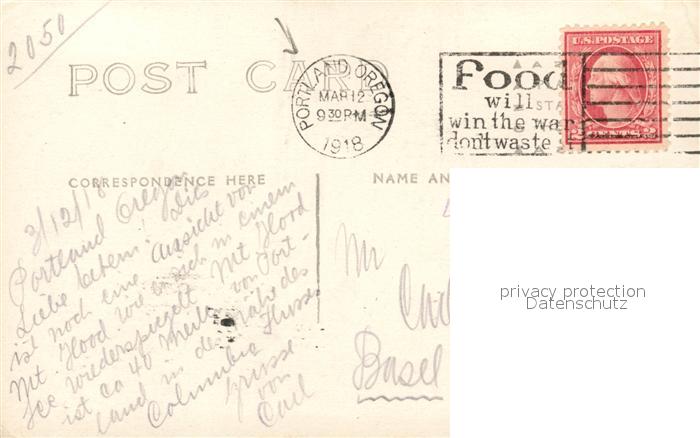 2050
POST CARD
PORTLAND, OREGON
MAR 12
9 30 PM
1918
Food
will
win the war
don't waste it
U.S. POSTAGE
2 CENTS 2
CORRESPONDENCE HERE
NAME AN
3/12/18
Portland Oregon
Liebe Dies
ist noch eine Aussicht von
Mt. Hood wie er sich in einem
See wiederspiegelt Mt Hood
ist ca 40 Meilen von Port-
land in der Nähe des
Columbia Flusses
Grüsse
von
Carl
Mr
Basel
privacy protection
Datenschutz